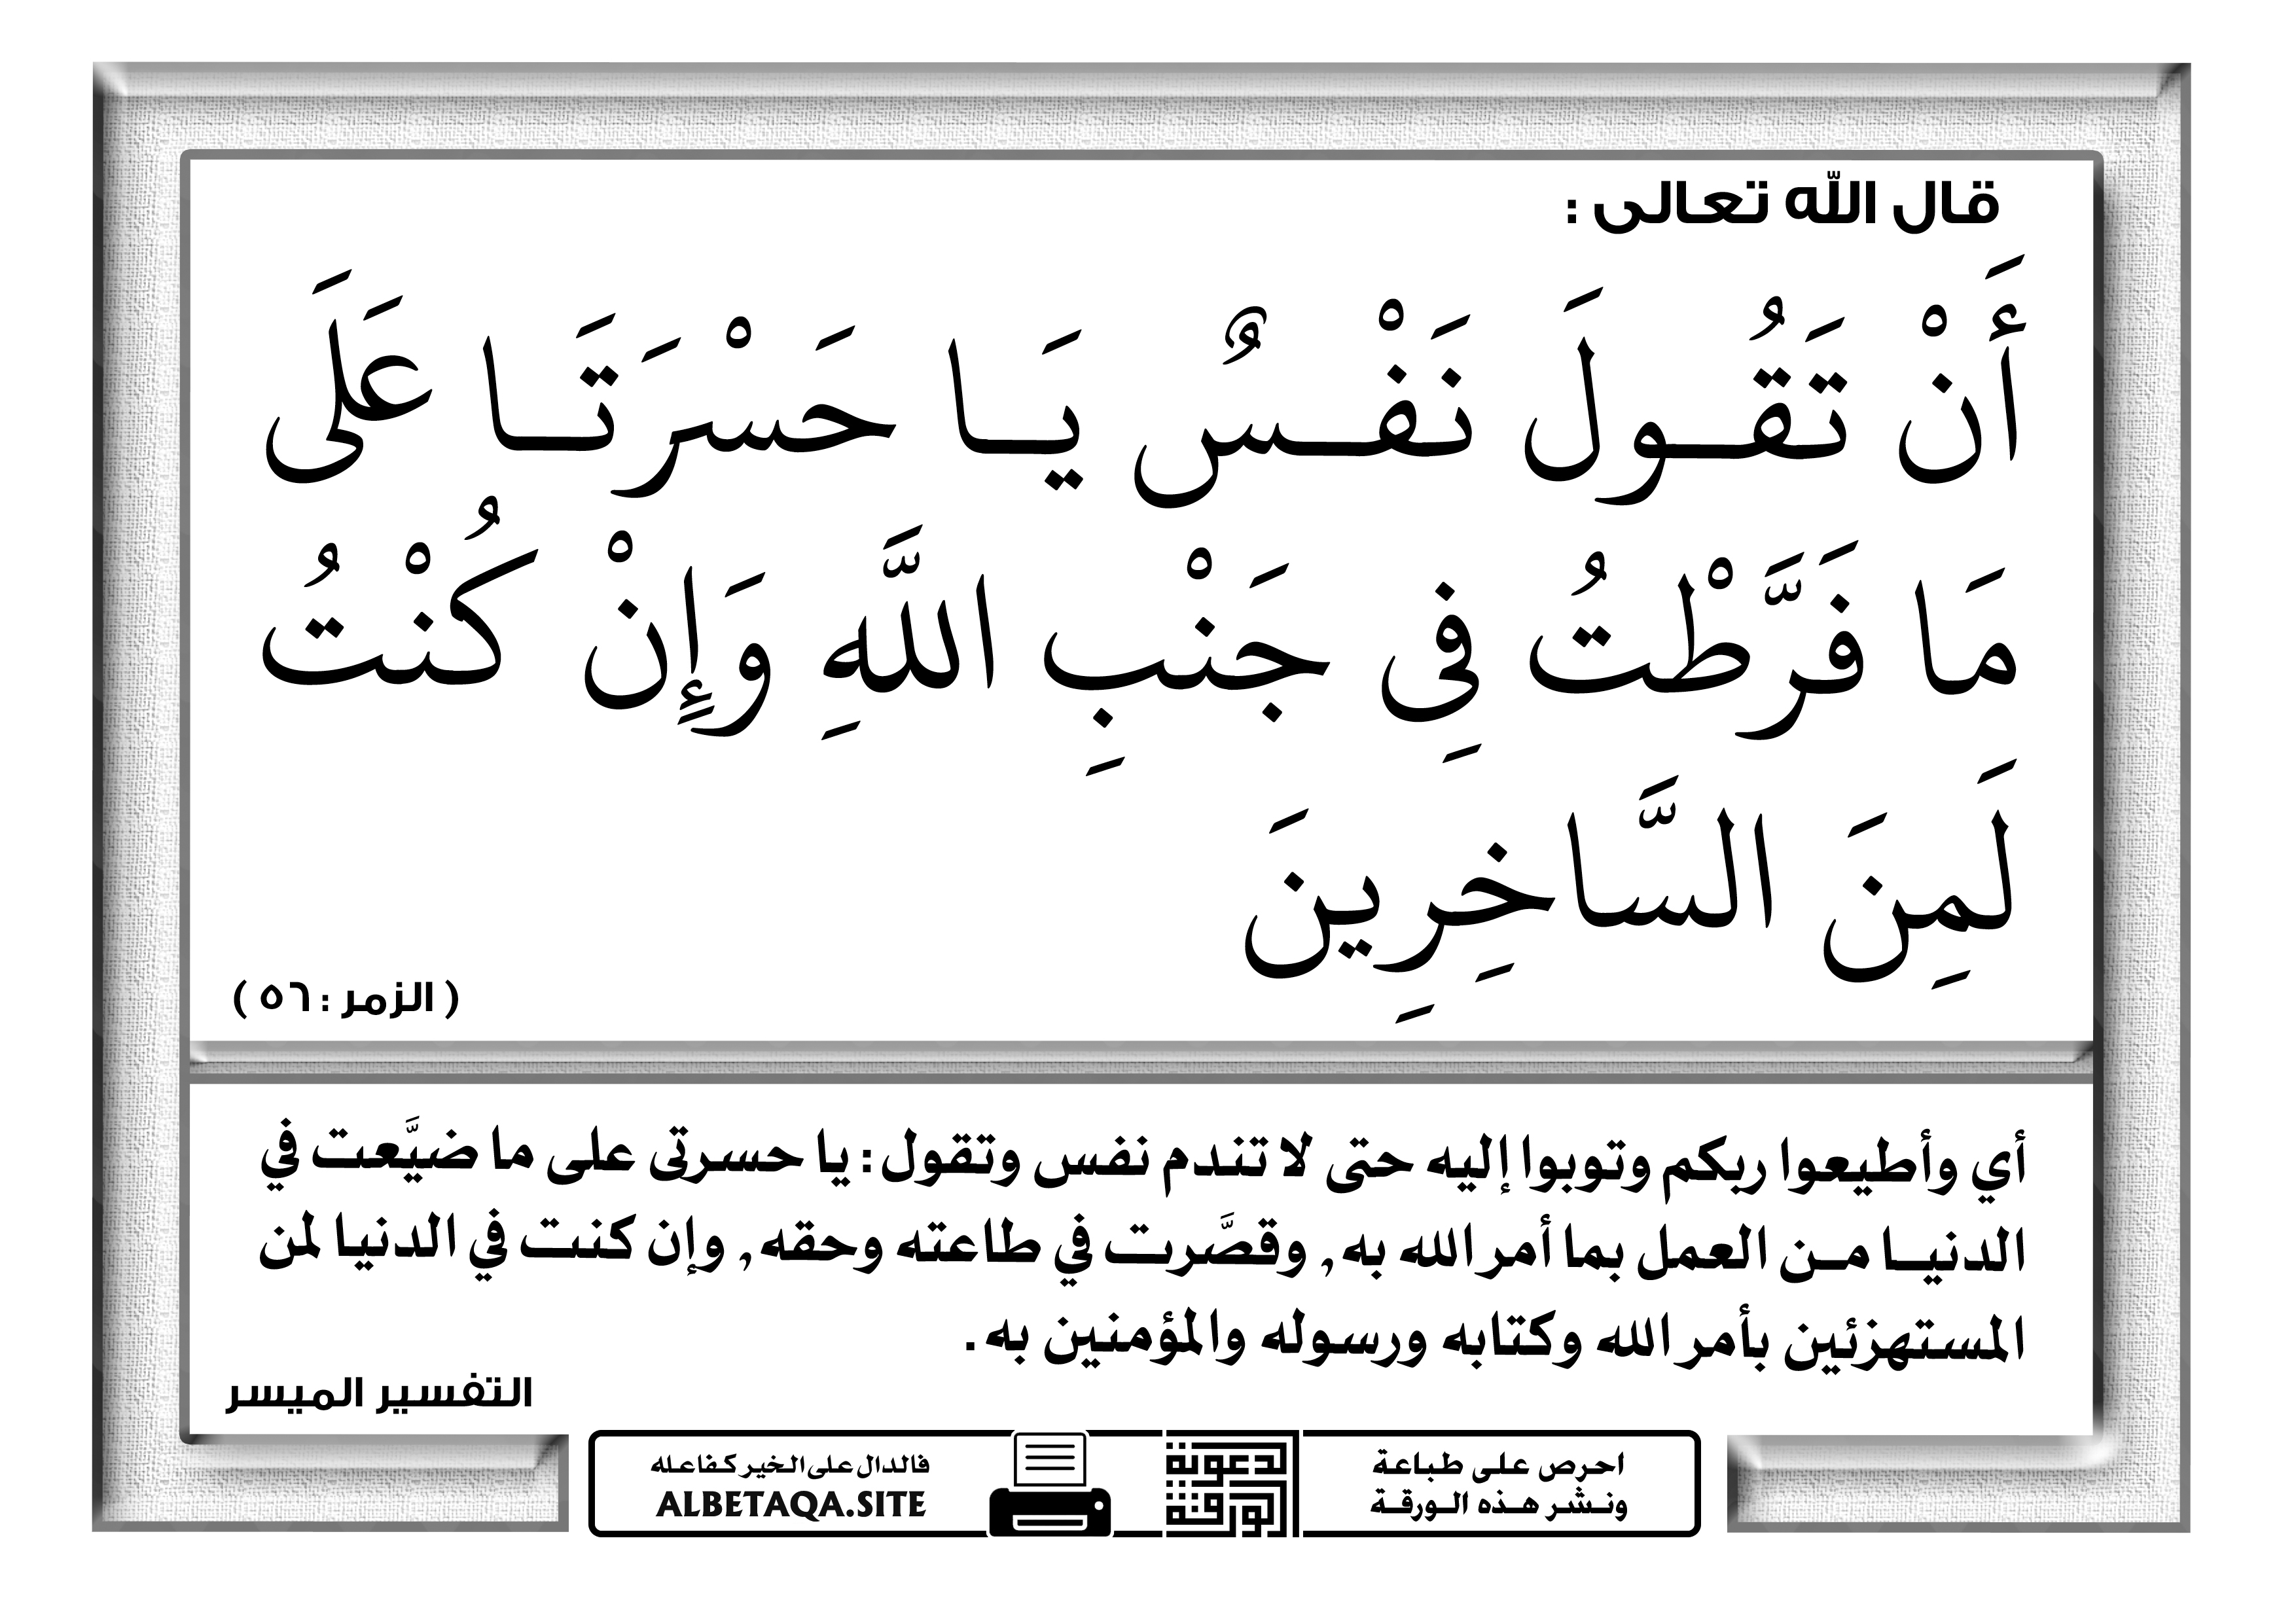 قال الله تعالى :
أَنْ تَقُـولَ نَفْـسٌ يَـا حَسْرَتَـا عَلَى
مَا فَرَّطْتُ فِي جَنْبِ اللَّهِ وَإِنْ كُنْتُ
لَمِنَ السَّاخِرِينَ
( الزمر : ٥٦ )
أي وأطيعوا ربكم وتوبوا إليه حتى لا تندم نفس وتقول : يا حسرتى على ما ضيَّعت في
الدنيـا مـن العمل بما أمر الله به , وقصَّرت في طاعته وحقه , وإن كنت في الدنيا لمن
المستهزئين بأمر الله وكتابه ورسوله والمؤمنين به .
التفسير الميسر
احرص على طباعة
ونـشـر هـذه الـورقـة
لدعوية
الورقة
فالدال على الخير كفاعله
ALBETAQA.SITE